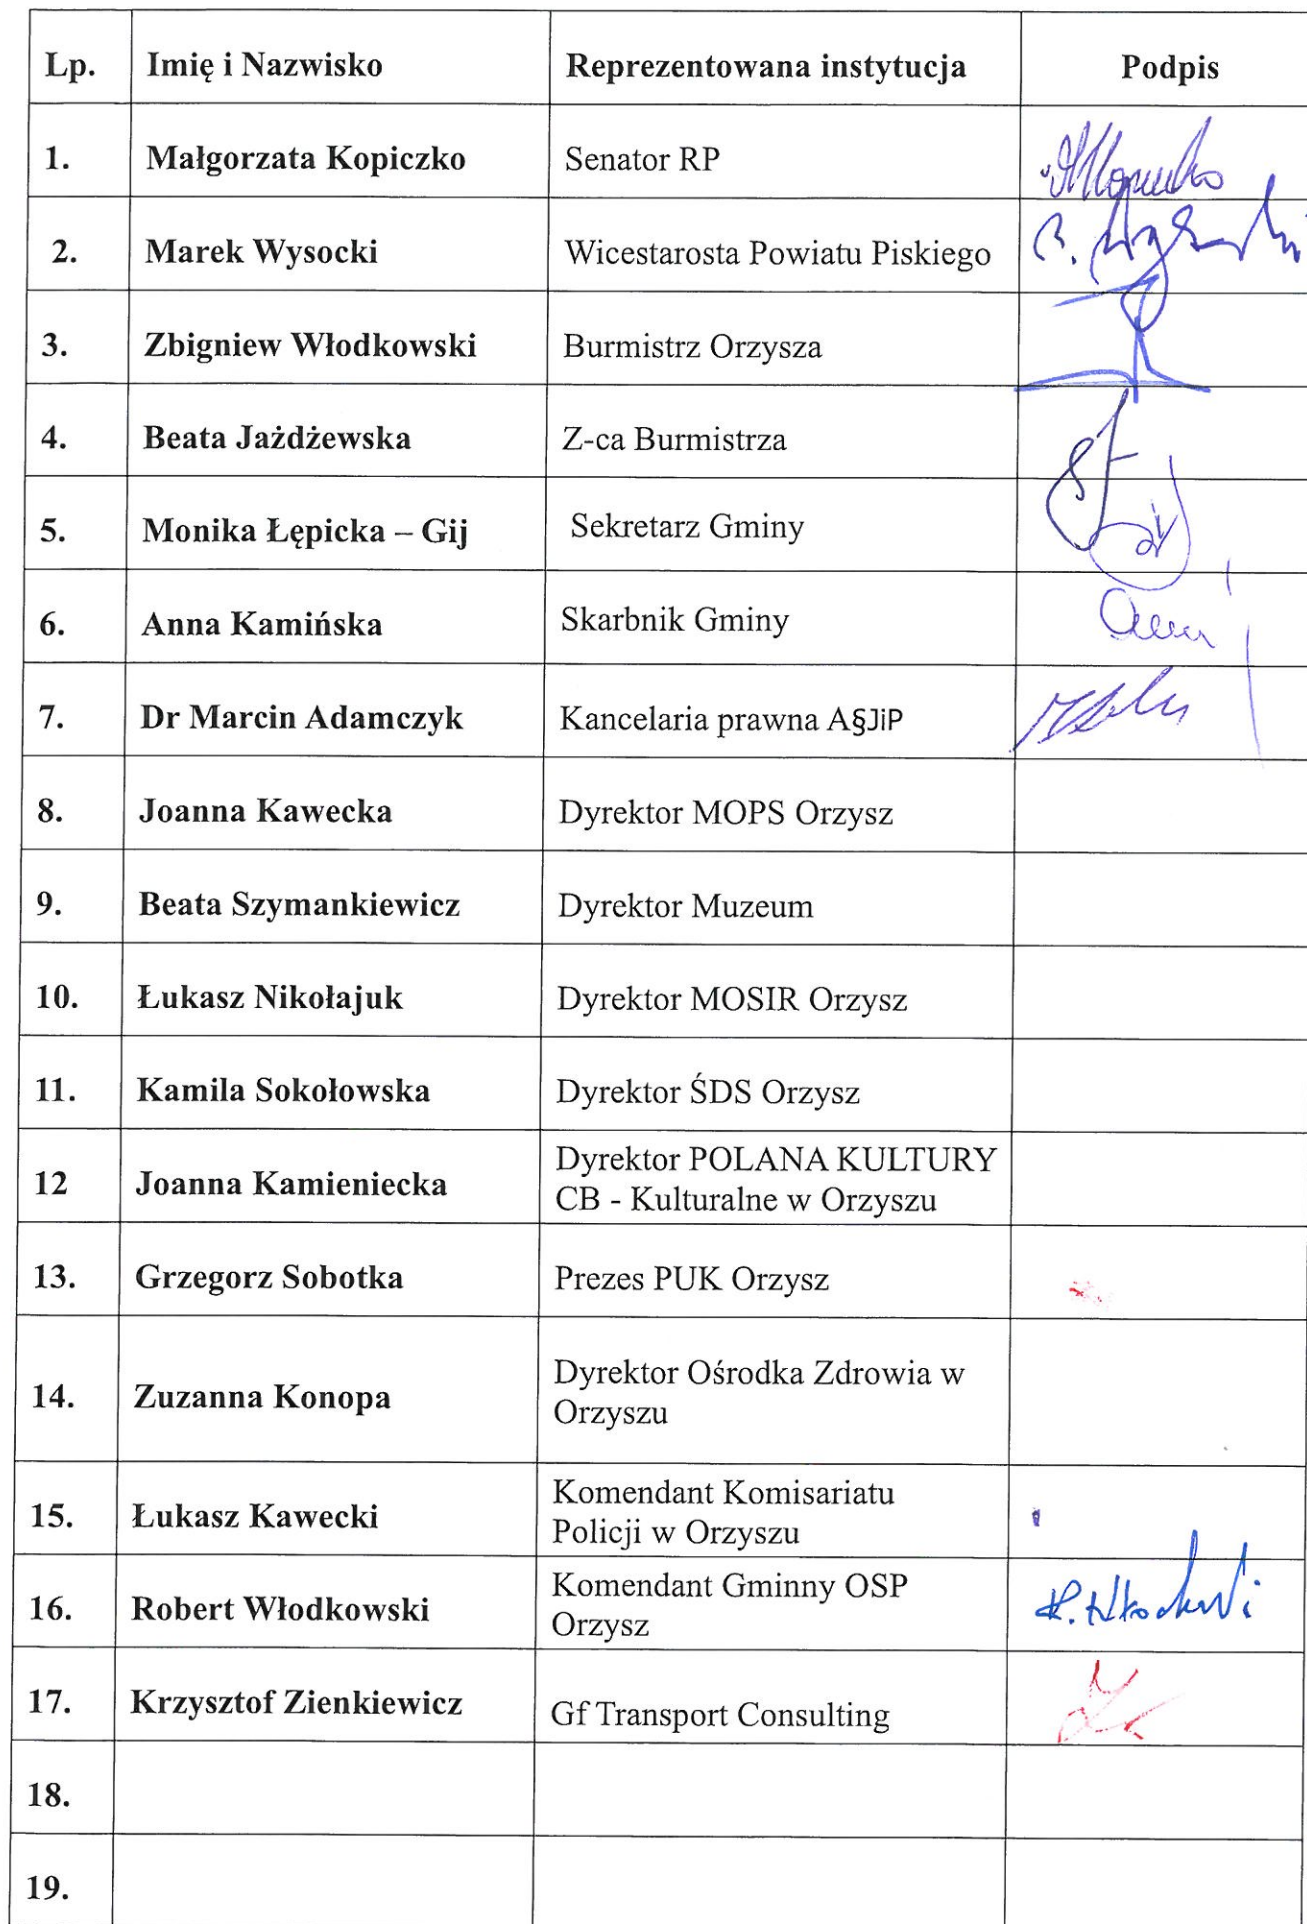 Lp. Imię i Nazwisko Reprezentowana instytucja Podpis
1. Małgorzata Kopiczko Senator RP
2. Marek Wysocki Wicestarosta Powiatu Piskiego
3. Zbigniew Włodkowski Burmistrz Orzysza
4. Beata Jażdżewska Z-ca Burmistrza
5. Monika Łępicka – Gij Sekretarz Gminy
6. Anna Kamińska Skarbnik Gminy
7. Dr Marcin Adamczyk Kancelaria prawna A§JiP
8. Joanna Kawecka Dyrektor MOPS Orzysz
9. Beata Szymankiewicz Dyrektor Muzeum
10. Łukasz Nikołajuk Dyrektor MOSIR Orzysz
11. Kamila Sokołowska Dyrektor ŚDS Orzysz
12 Joanna Kamieniecka Dyrektor POLANA KULTURY
CB - Kulturalne w Orzyszu
13. Grzegorz Sobotka Prezes PUK Orzysz
14. Zuzanna Konopa Dyrektor Ośrodka Zdrowia w
Orzyszu
15. Łukasz Kawecki Komendant Komisariatu
Policji w Orzyszu
16. Robert Włodkowski Komendant Gminny OSP
Orzysz
17. Krzysztof Zienkiewicz Gf Transport Consulting
18.
19.